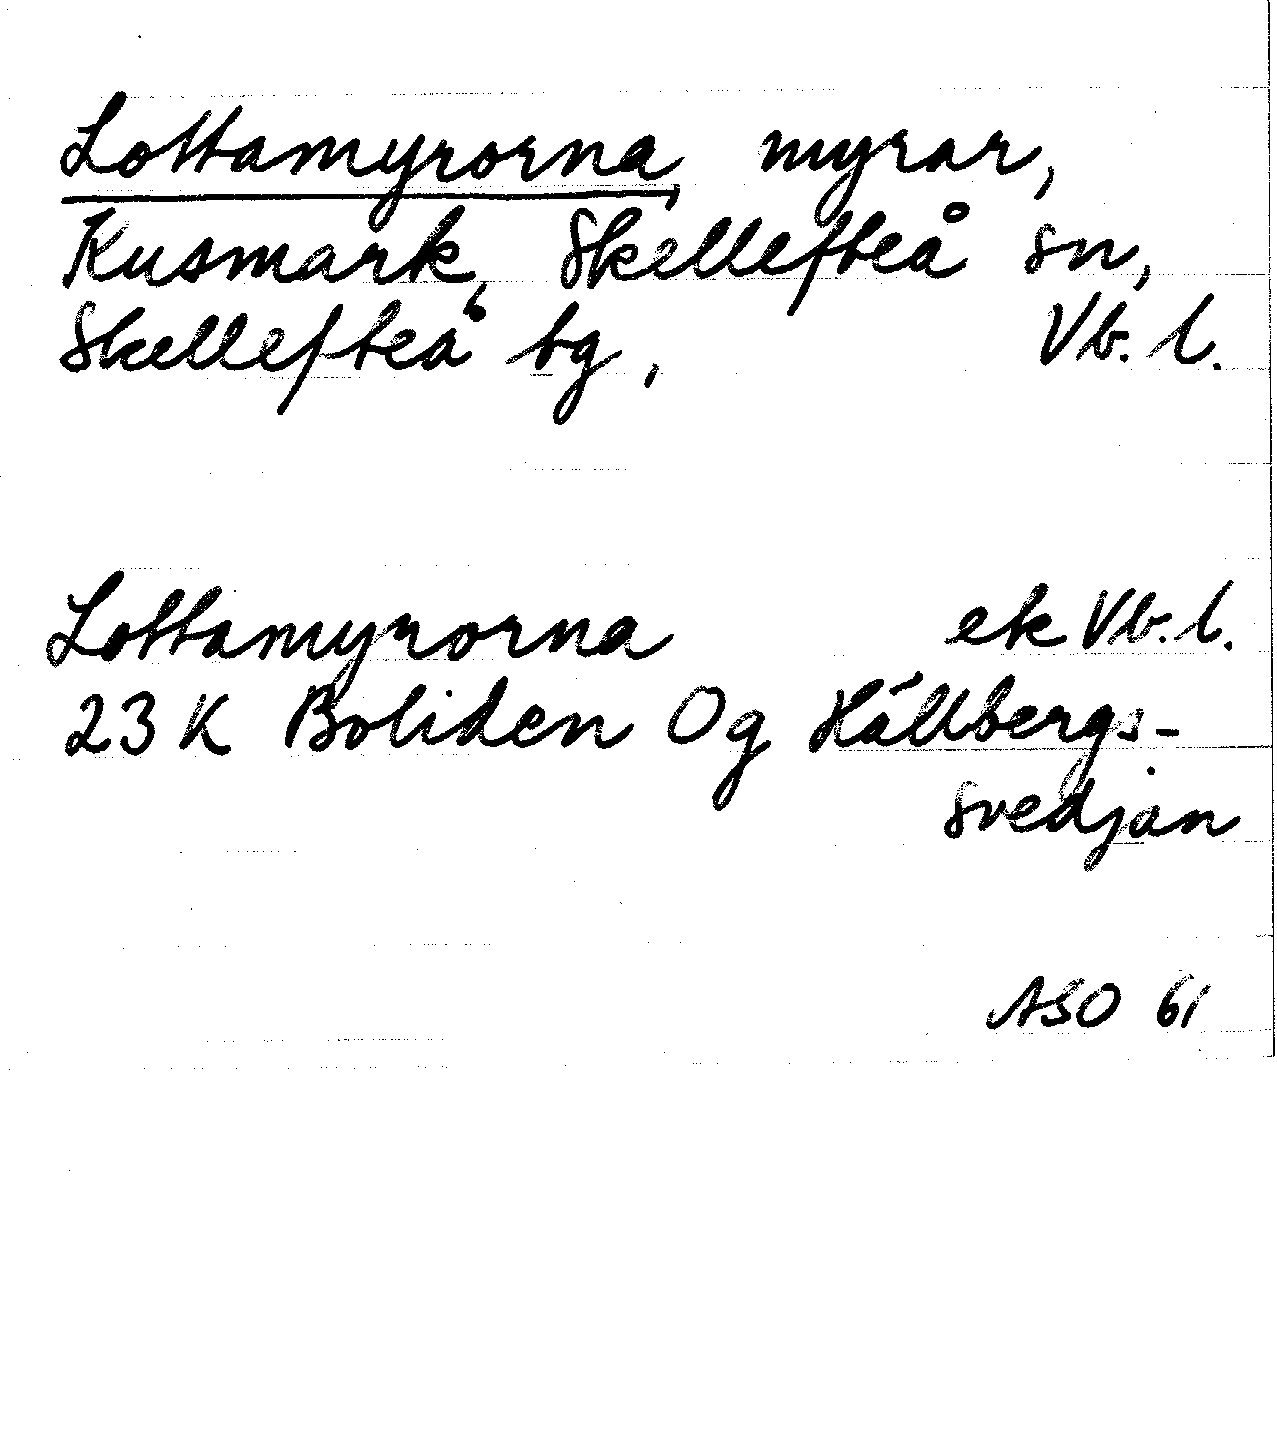 Lottamyrorna, myrar,
Kusmark, Skellefteå sn,
Skellefteå tg, Vb. l.
Lottamyrorna ek Vb. l.
23 K Boliden Og Hällbergs-
svedjan
ASO 61